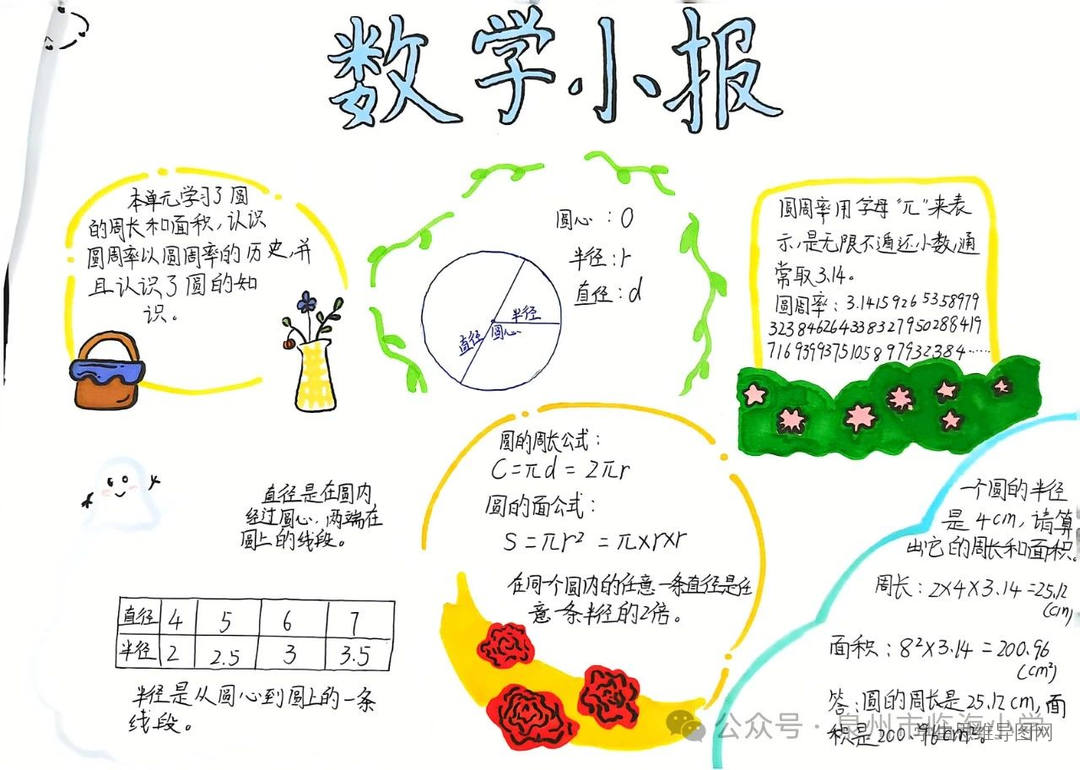 数学小报
本单元学习了圆
的周长和面积，认识
圆周率以圆周率的历史，并
且认识了圆的知
识。
圆心：O
半径：r
直径：d
半径
直径
圆心
圆周率用字母“π”来表
示，是无限不循还小数，通
常取3.14。
圆周率：3.14159265358979
323846264338327950288419
7169399375105897932384……
直径是在圆内
经过圆心，两端在
圆上的线段。
直径 4 5 6 7
半径 2 2.5 3 3.5
半径是从圆心到圆上的一条
线段。
圆的周长公式：
C=πd=2πr
圆的面公式：
S=πr²=π×r×r
在同一个圆内的任意一条直径是任
意一条半径的2倍。
一个圆的半径
是4cm，请算
出它的周长和面积。
周长：2×4×3.14=25.12
(cm)
面积：8²×3.14=200.96
(cm²)
答：圆的周长是25.12cm，面
积是200.96cm²。
公众号·泉州市临海小学
维导图网